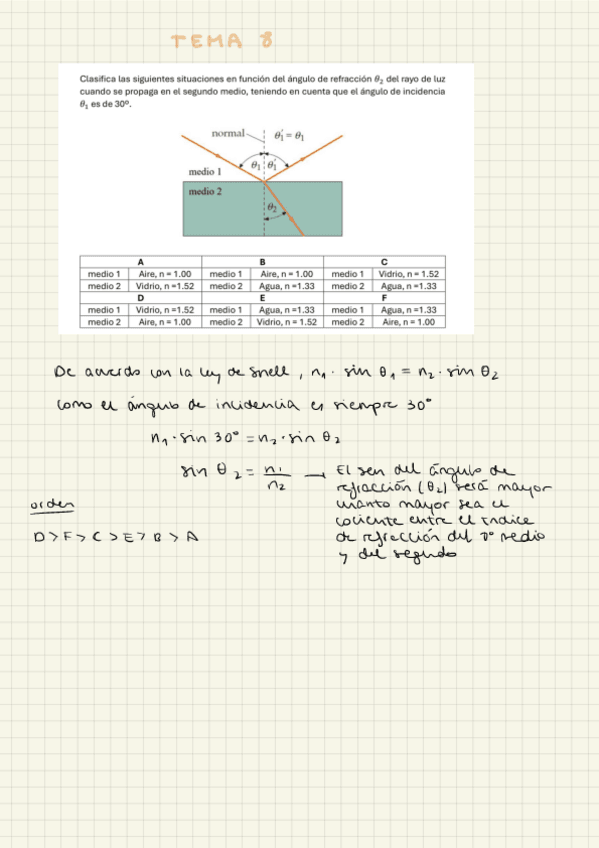 TEMA 8
Clasifica las siguientes situaciones en función del ángulo de refracción θ₂ del rayo de luz
cuando se propaga en el segundo medio, teniendo en cuenta que el ángulo de incidencia
θ₁ es de 30º.
normal θ₁′ = θ₁
θ₁ θ₁′
medio 1
medio 2
θ₂
A B C
medio 1 Aire, n = 1.00 medio 1 Aire, n = 1.00 medio 1 Vidrio, n = 1.52
medio 2 Vidrio, n =1.52 medio 2 Agua, n =1.33 medio 2 Agua, n =1.33
D E F
medio 1 Vidrio, n =1.52 medio 1 Agua, n =1.33 medio 1 Agua, n =1.33
medio 2 Aire, n = 1.00 medio 2 Vidrio, n = 1.52 medio 2 Aire, n = 1.00
De acuerdo con la ley de Snell, n₁ · sin θ₁ = n₂ · sin θ₂
Como el ángulo de incidencia es siempre 30°
n₁ · sin 30° = n₂ · sin θ₂
sin θ₂ = n₁/n₂ → El sen del ángulo de
refracción (θ₂) será mayor
cuanto mayor sea el
cociente entre el índice
de refracción del 1º medio
y del segundo
orden
D > F > C > E > B > A